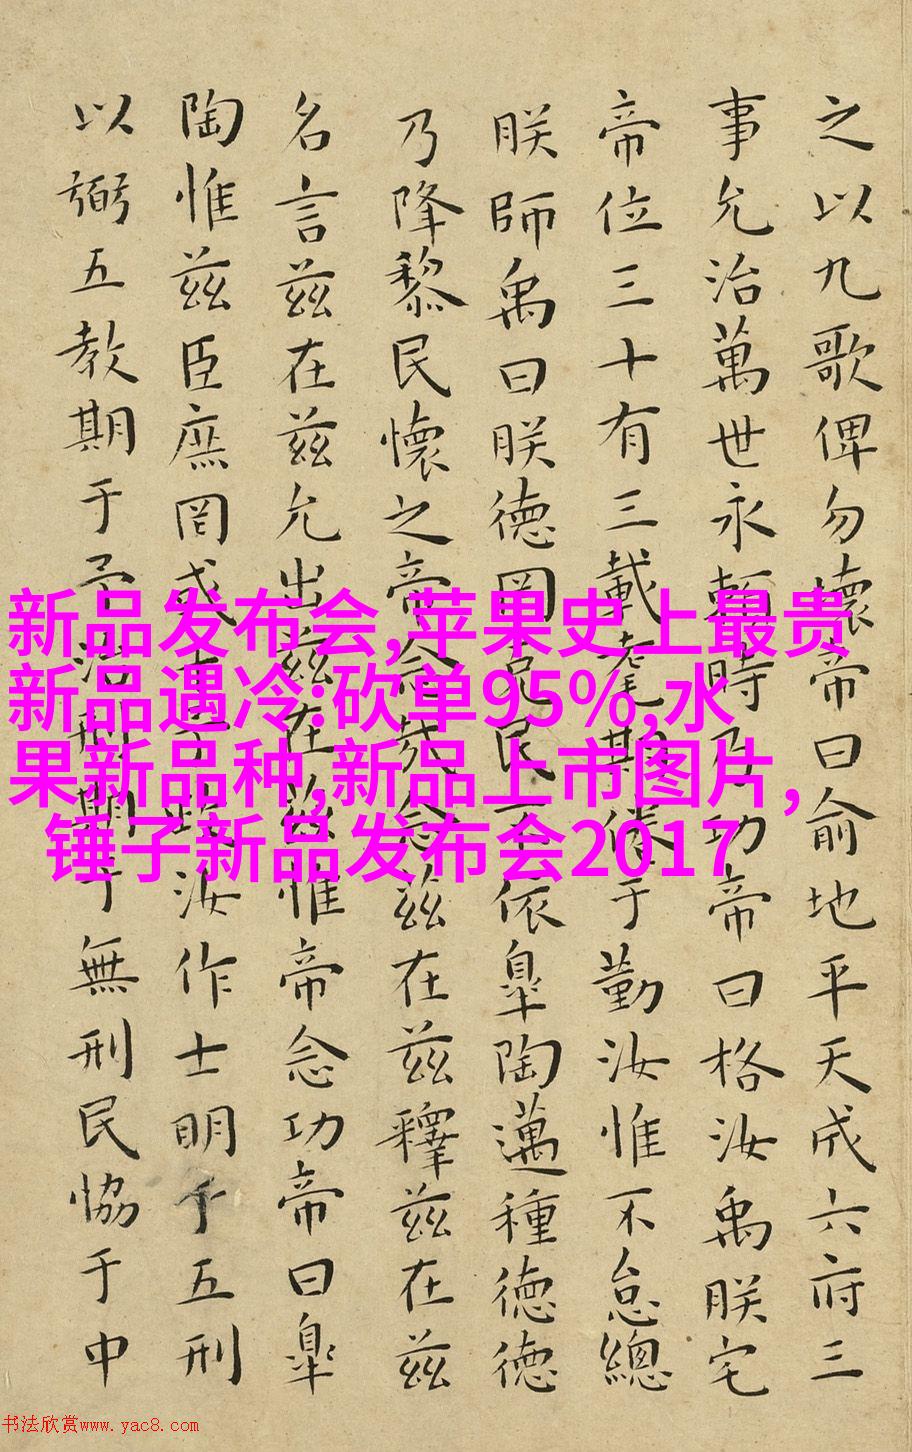 之以九歌俾勿壞帝曰俞地平天成六府三
事允治萬世永賴時乃功帝曰格汝禹朕宅
帝位三十有三載耄期倦于勤汝惟不怠總
朕師禹曰朕德罔克民不依皐陶邁種德德
乃降黎民懷之帝念哉念茲在茲釋茲在茲
名言茲在茲允出茲在茲惟帝念功帝曰皐
陶惟茲臣庶罔或干予政汝作士明于五刑
以弼五教期于予治刑期于無刑民恊于中
新品发布会,苹果史上最贵
新品遇冷:砍单95%,水
果新品种,新品上市图片,
锤子新品发布会2017
书法欣赏www.yac8.com